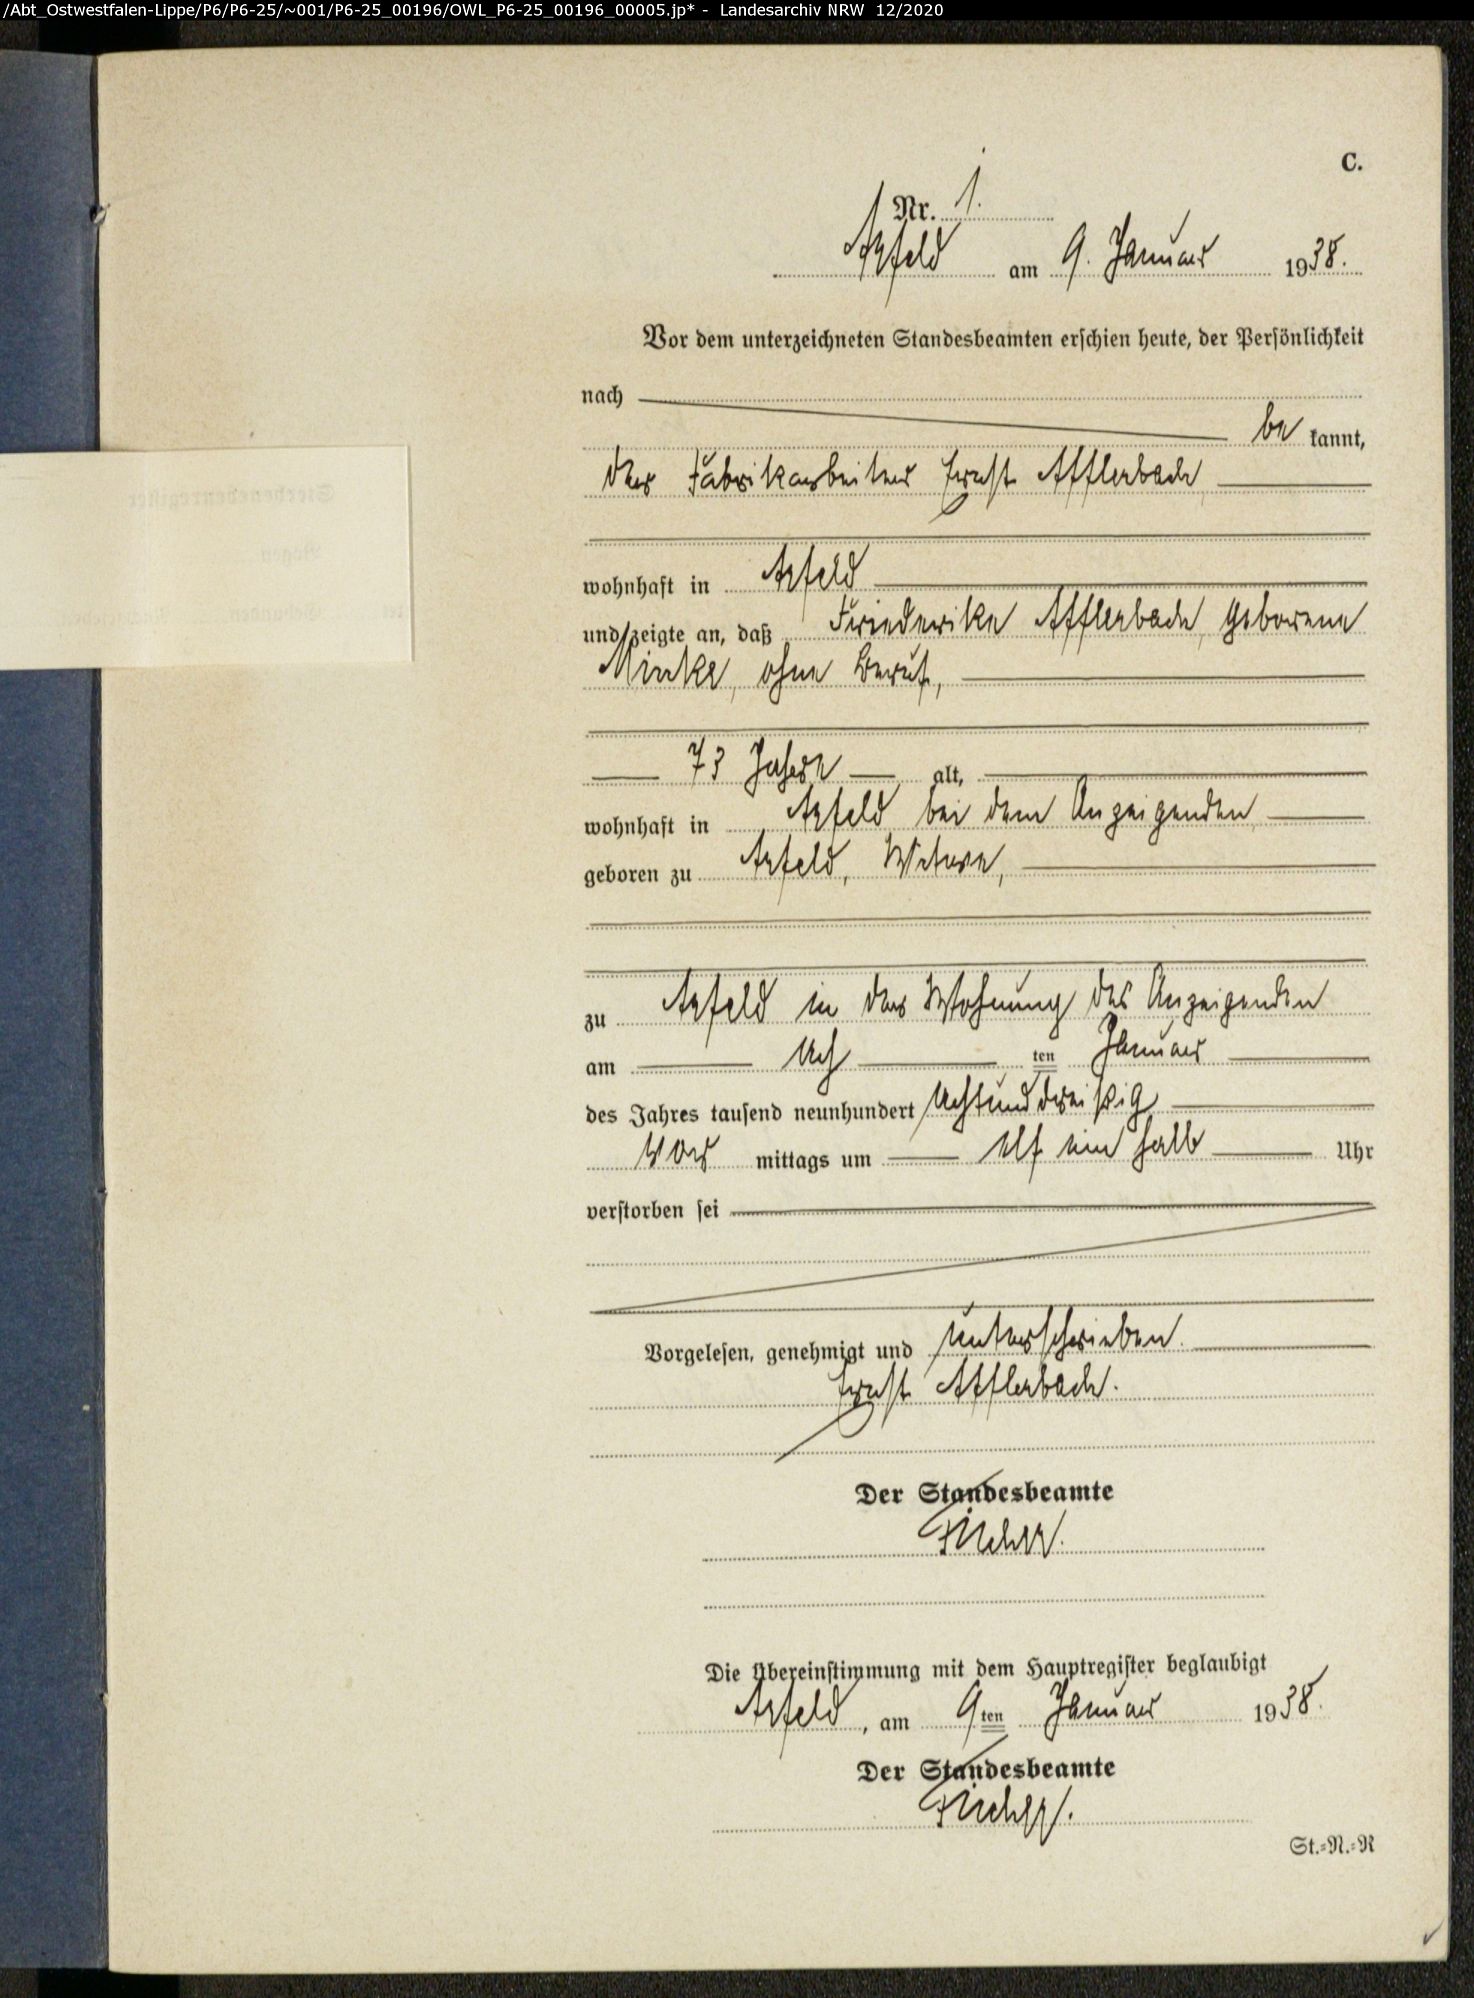 /Abt_Ostwestfalen-Lippe/P6/P6-25/~001/P6-25_00196/OWL_P6-25_00196_00005.jp* - Landesarchiv NRW 12/2020
C.
Nr. 1.
Arfeld am 9. Januar 1938.
Vor dem unterzeichneten Standesbeamten erschien heute, der Persönlichkeit
nach
be kannt,
der Fabrikarbeiter Ernst Afflerbach
wohnhaft in Arfeld
und zeigte an, daß Friederike Afflerbach, geborene
Minke, ohne Beruf,
73 Jahre alt,
wohnhaft in Arfeld bei dem Anzeigenden
geboren zu Arfeld, Witwe,
zu Arfeld in der Wohnung des Anzeigenden
am Ach ten Januar
des Jahres tausend neunhundert Achtunddreißig
Vor mittags um elf ein halb Uhr
verstorben sei
Vorgelesen, genehmigt und unterschrieben.
Ernst Afflerbach.
Der Standesbeamte
Die Übereinstimmung mit dem Hauptregister beglaubigt
Arfeld, am 9ten Januar 1938.
Der Standesbeamte
St.-N.-R